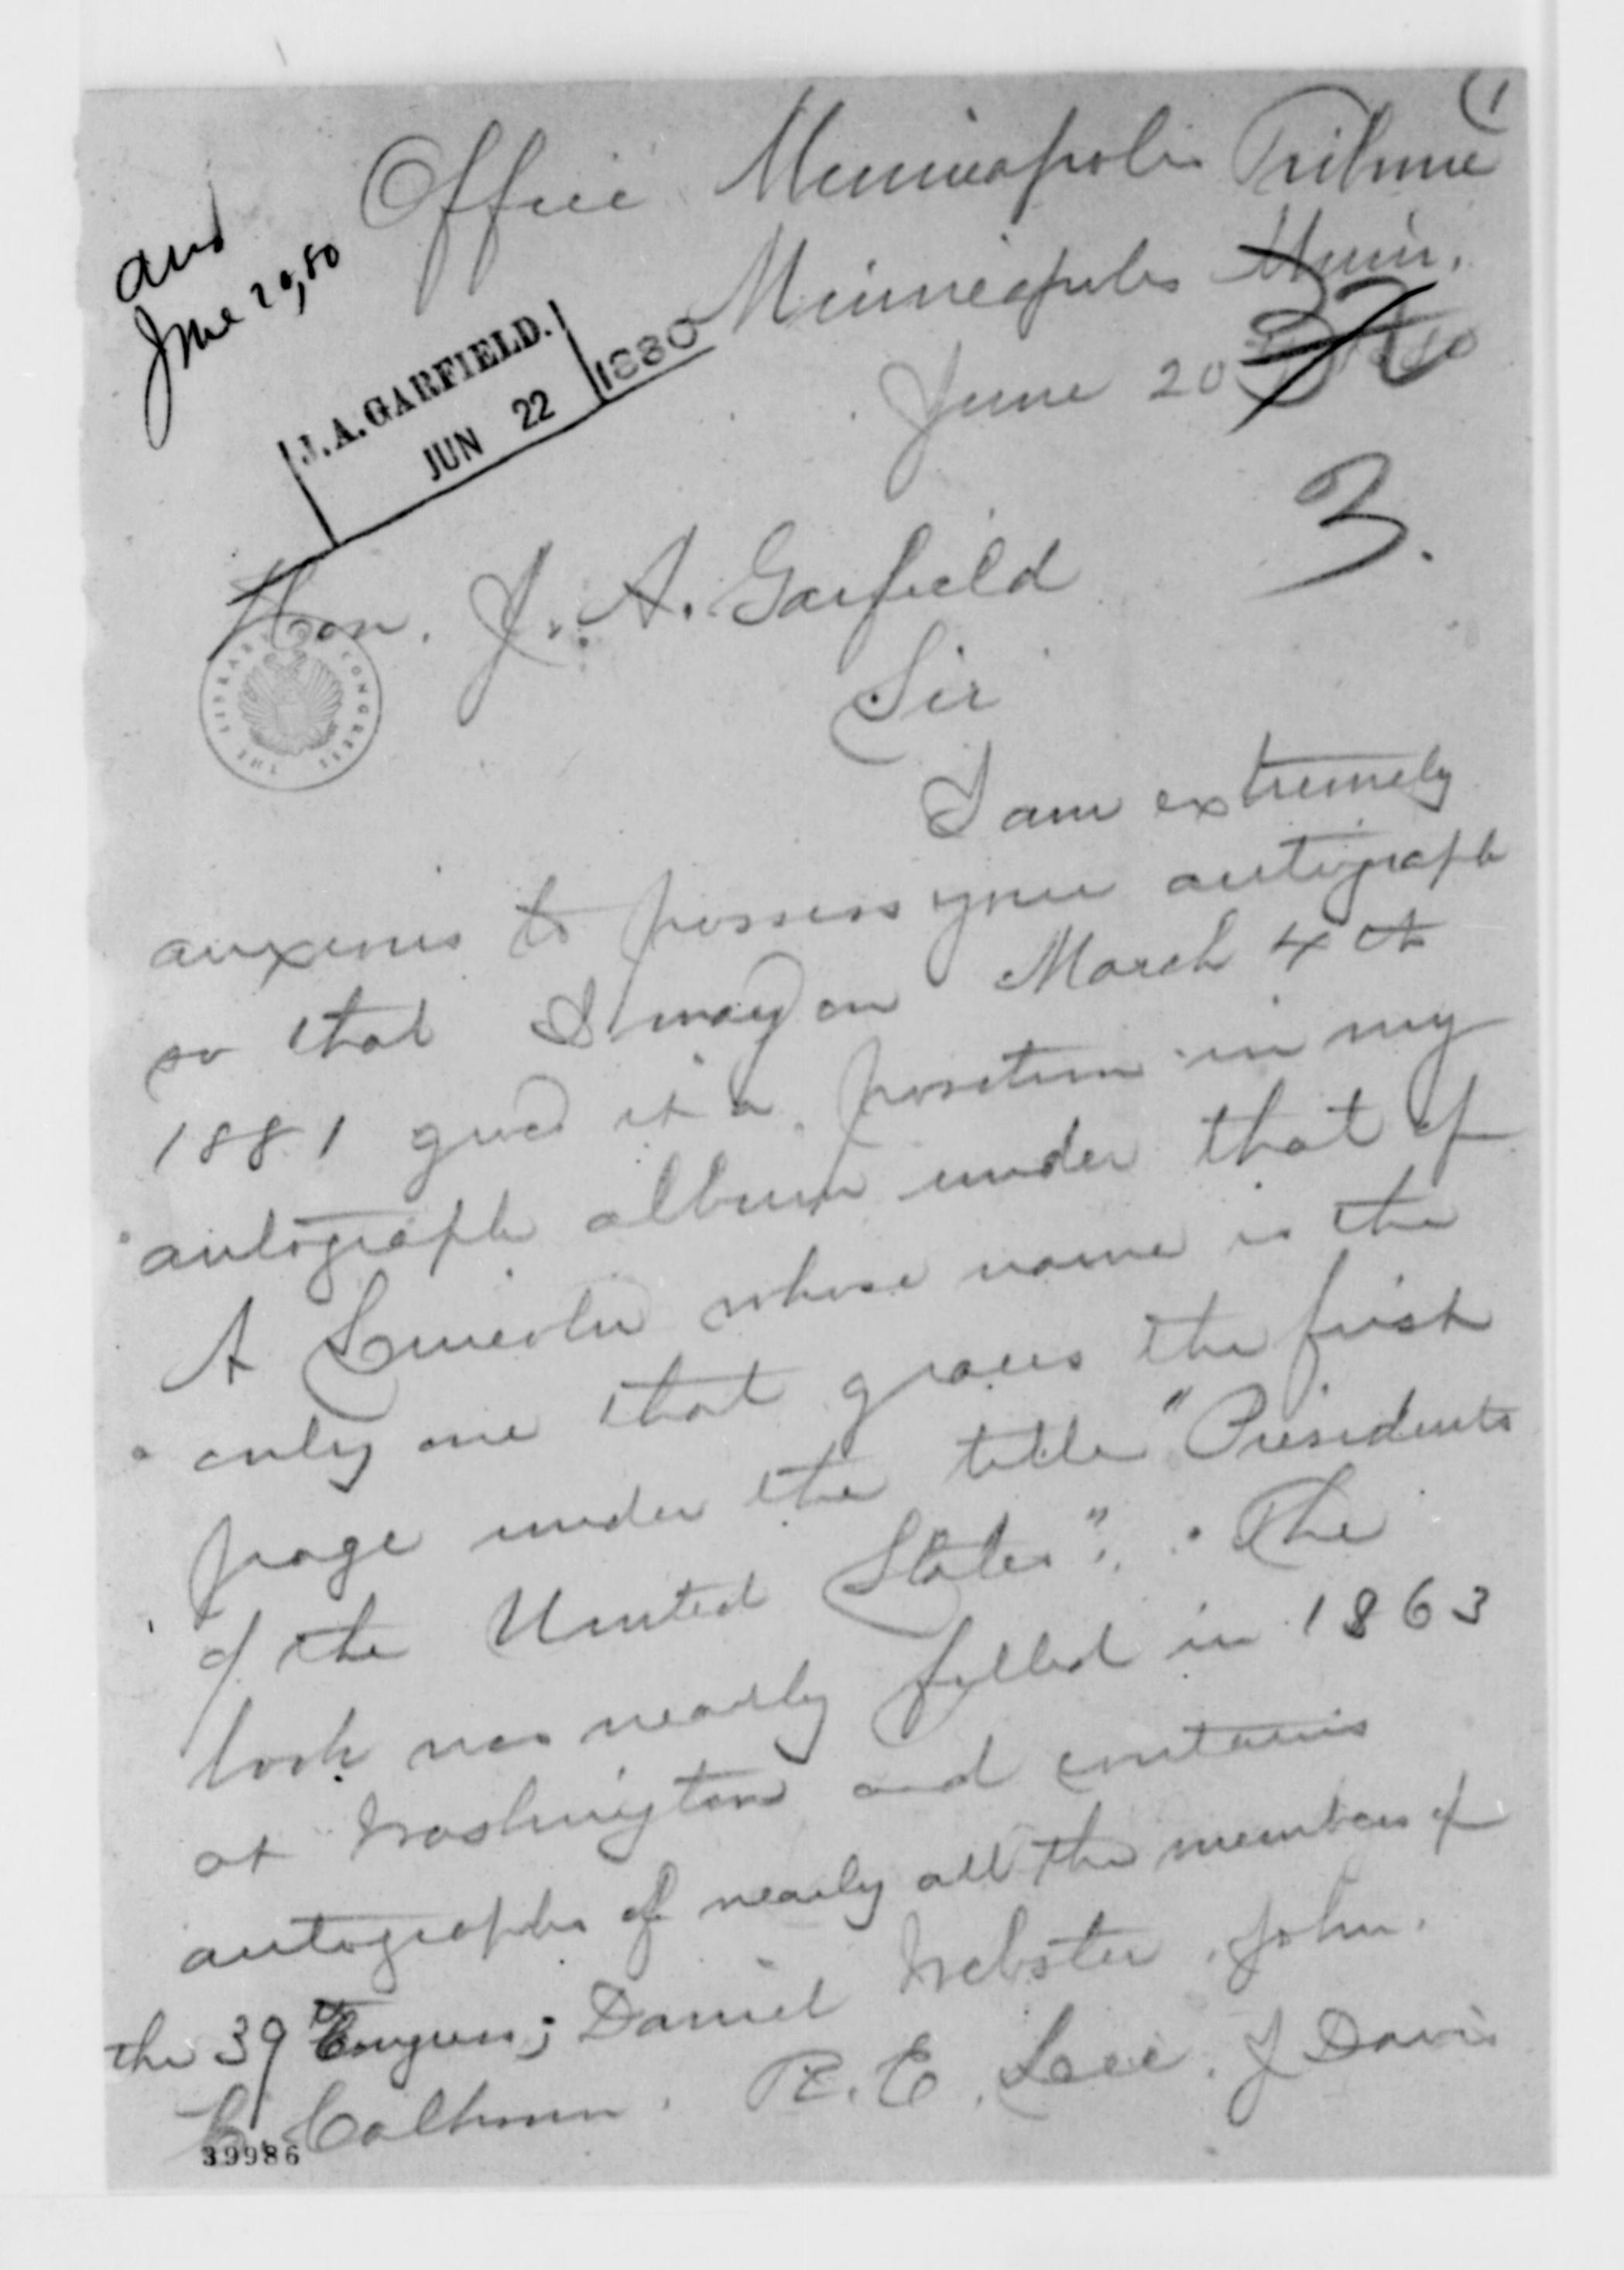 (1
Office Minneapolis Tribune
Minneapolis Minn.
June 20
and
June 20, 80
J. A. GARFIELD.
JUN 22 1880
3.
Hon. J. A. Garfield
THE LIBRARY CONGRESS
Sir
I am extremely
anxious to possess your autograph
so that I may on March 4th
1881 give it a position in my
autograph album under that of
A Lincoln whose name is the
only one that graces the first
page under the title "Presidents
of the United States". The
book was nearly filled in 1863
at Washington and contains
autographs of nearly all the members of
the 39th Congress; Daniel Webster, John.
C. Calhoun. R. E. Lee. J Davis
39986